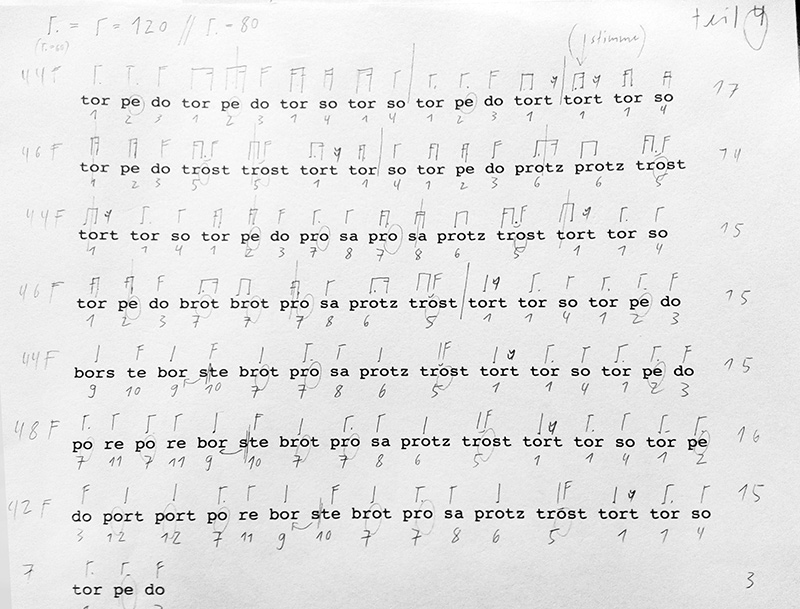 = 120 // - 80 teil 4
(1 stimme)
44 F tor pe do tor pe do tor so tor so tor pe do tort tort tor so 17
1 2 3 1 2 3 1 4 1 4 1 2 3 1 1 1 4
46 F tor pe do trost trost tort tor so tor pe do protz protz trost 14
1 2 3 5 5 1 1 4 1 2 3 6 6 5
44 F tort tor so tor pe do pro sa pro sa protz trost tort tor so 15
1 1 4 1 2 3 7 8 7 8 6 5 1 1 4
46 F tor pe do brot brot pro sa protz trost tort tor so tor pe do 15
1 2 3 7 7 7 8 6 5 1 1 4 1 2 3
44 F bors te bor ste brot pro sa protz trost tort tor so tor pe do 15
9 10 9 10 7 7 8 6 5 1 1 4 1 2 3
48 F po re po re bor ste brot pro sa protz trost tort tor so tor pe 16
7 11 7 11 9 10 7 7 8 6 5 1 1 4 1 2
42 F do port port po re bor ste brot pro sa protz trost tort tor so 15
3 12 12 7 11 9 10 7 7 8 6 5 1 1 4
7 tor pe do 3